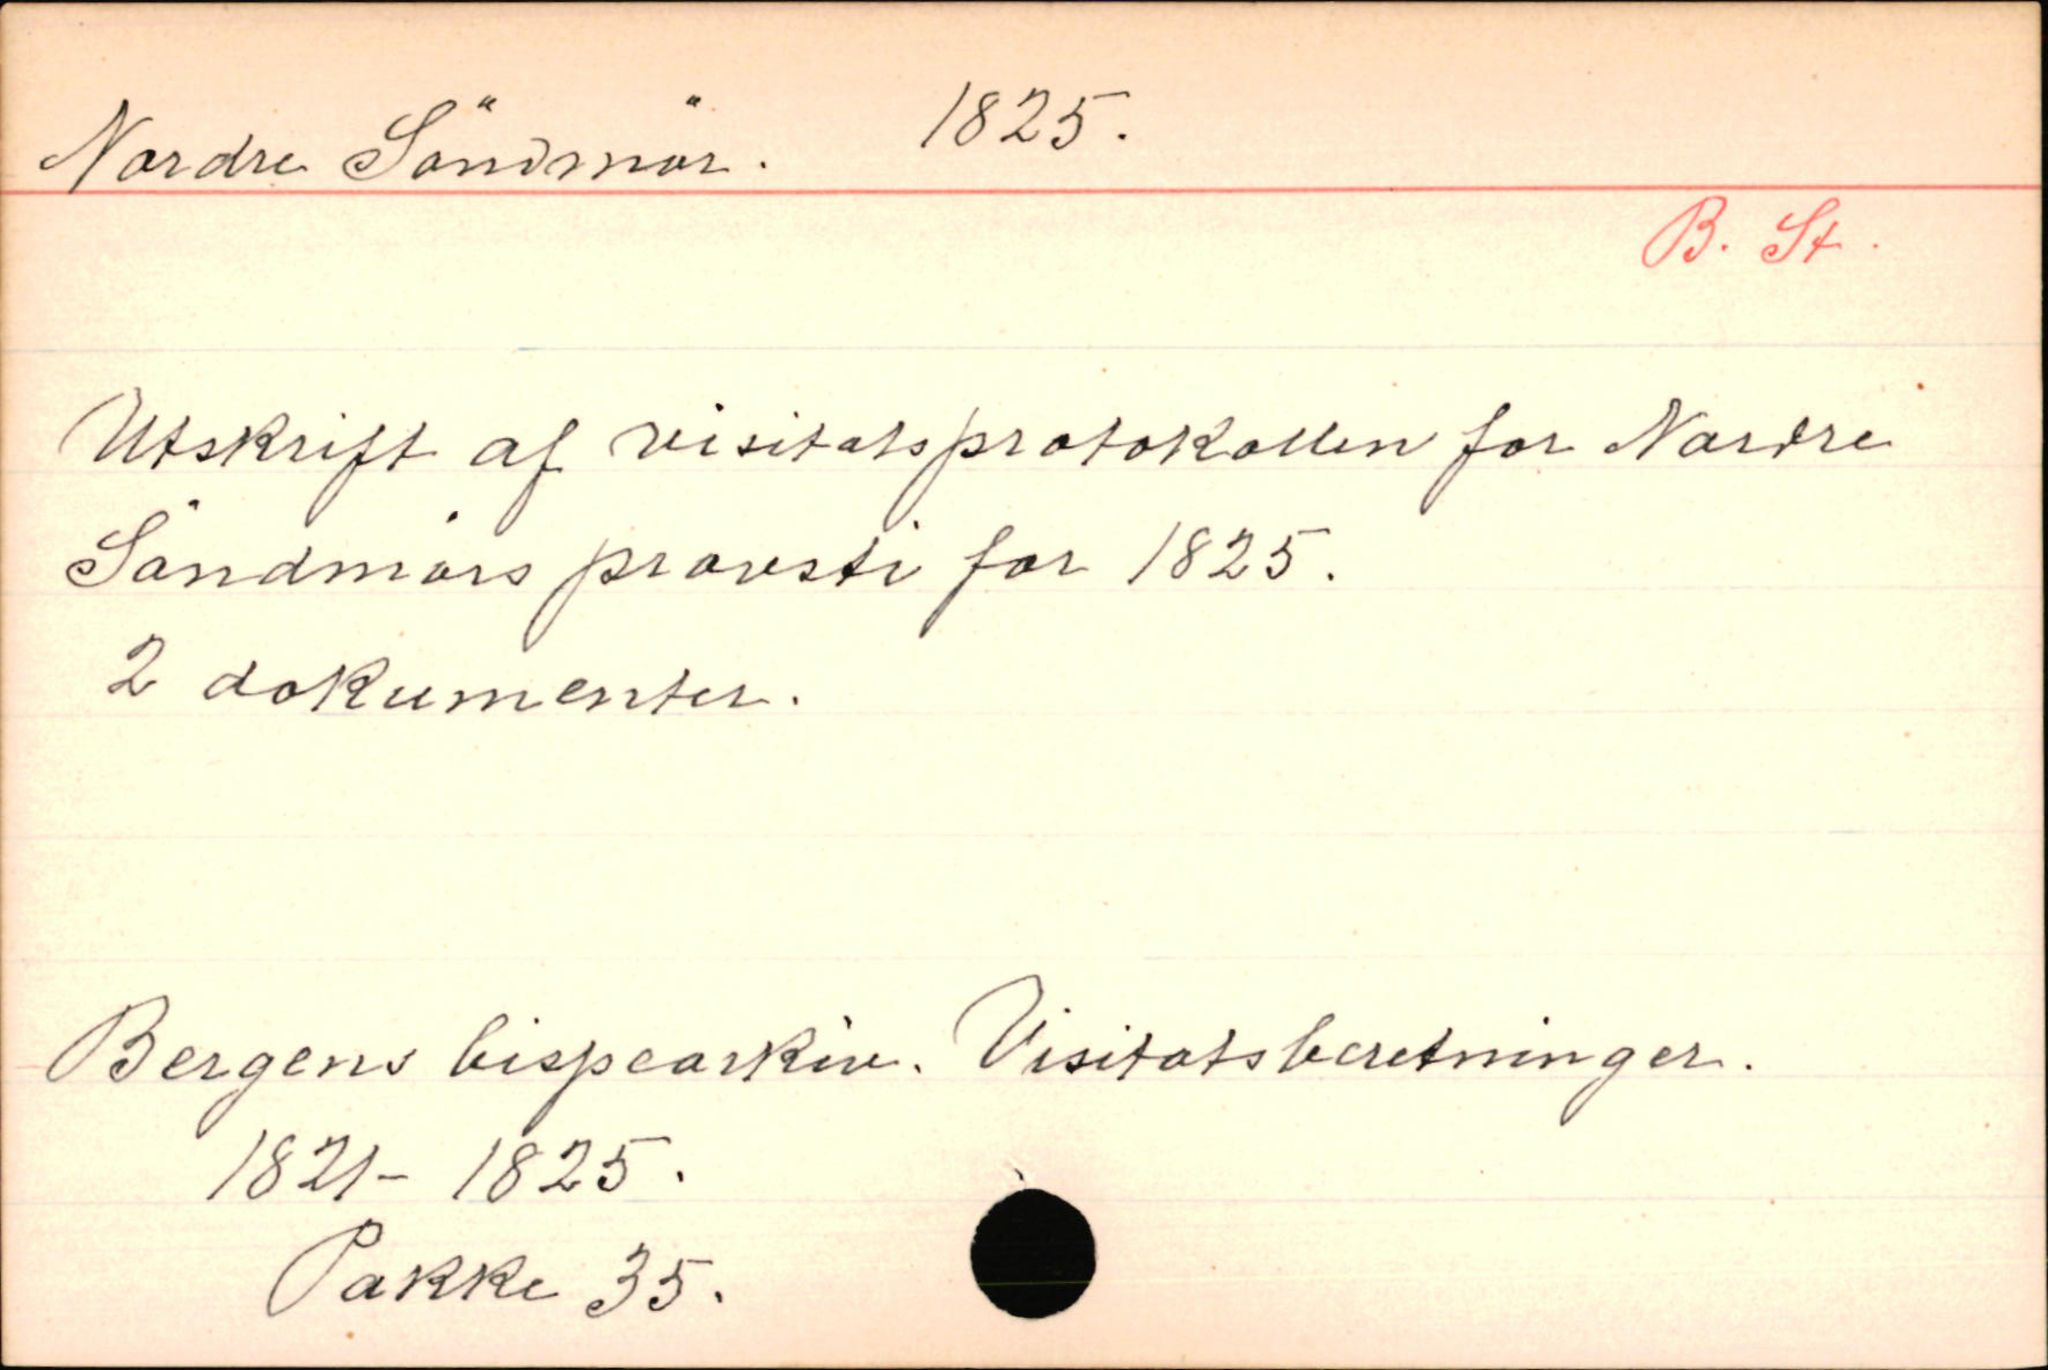 Nordre Söndmör. 1825.
B. St.
Utskrift af visitatsprotokollen for Nordre
Söndmörs provsti for 1825.
2 dokumenter.
Bergens bispearkiv. Visitatsberetninger.
1821- 1825.
Pakke 35.